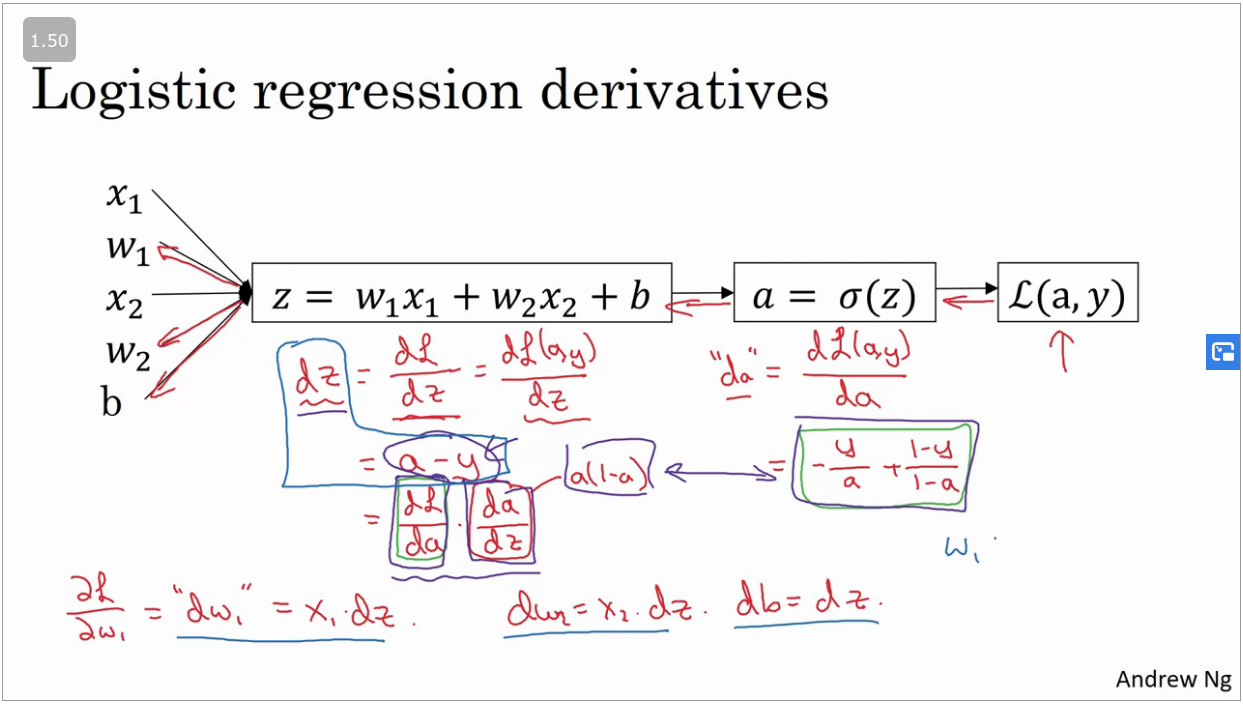 1.50
Logistic regression derivatives
x₁
w₁
x₂
w₂
b
z = w₁x₁ + w₂x₂ + b
a = σ(z)
ℒ(a, y)
dz = dℒ/dz = dℒ(a,y)/dz
"da" = dℒ(a,y)/da
= a - y
a(1-a)
= -y/a + 1-y/1-a
= dℒ/da · da/dz
w₁
∂ℒ/∂w₁ = "dw₁" = x₁·dz.
dw₂ = x₂·dz.
db = dz.
Andrew Ng